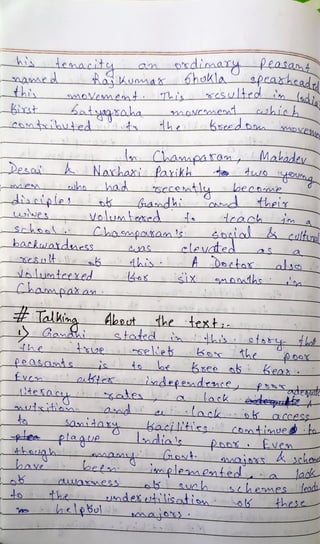 his tenacity an ordimary Peasant
named Raj Kumar Shukla spearheaded
this movement. This resulted in India's
first Satyagraha movement which
contributed to the freedom movement
In Champaran, Mahadev
Desai & Narhari Parikh two young
men who had recently become
disciples of Gandhi and their
wives volunteered to teach in a
school. Champaran's social & cultural
backwardness was elevated as a
result of this. A Doctor also
volunteered for six months in
Champaran.
# Talking About the text :-
1) Gandhi stated in this story that
the true relief for the poor
peasants is to be free of fear.
Even after independence, poor
literacy rates, a lack adequate
nutrition and a lack of access
to sanitary facilities continue to
plague India's poor. Even
though many Govt. majors & schemes
have been implemented, a lack
of awarness of such schemes leads
to the underutilisation of these
helpful majors.